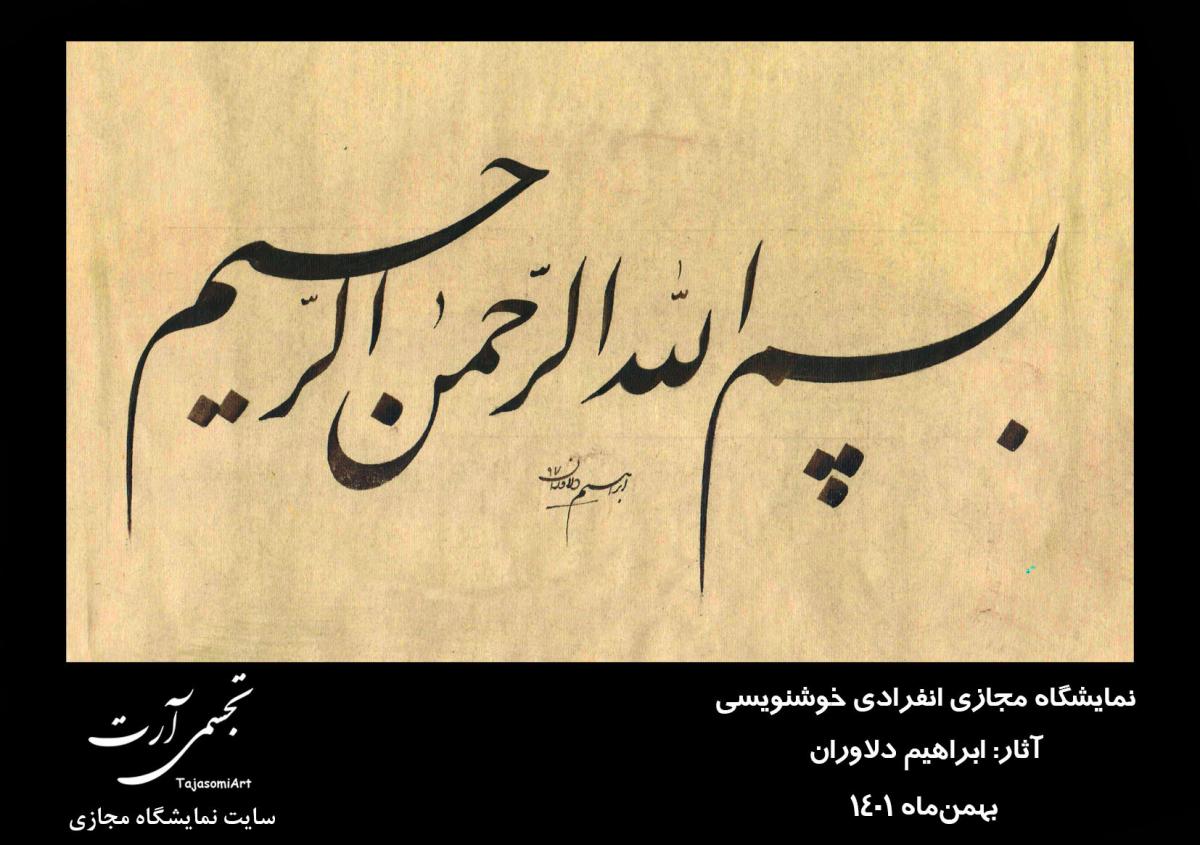 بسم الله الرّحمن الرّحیم
ابراهیم دلاوران ۹۷
نمایشگاه مجازی انفرادی خوشنویسی
آثار: ابراهیم دلاوران
بهمن‌ماه ۱٤۰۱
تجسمی آرت
TajasomiArt
سایت نمایشگاه مجازی